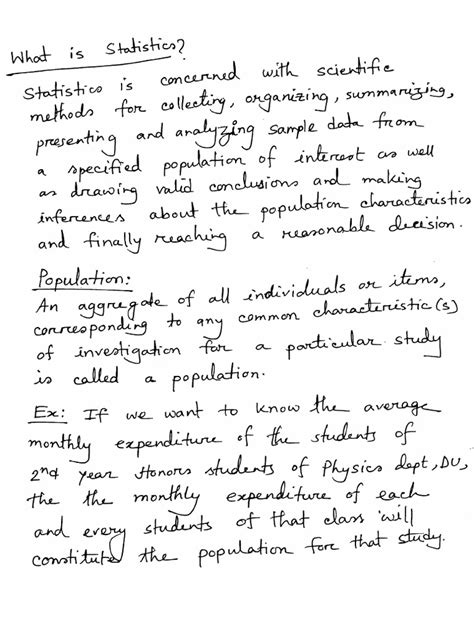 What is Statistics?
Statistics is concerned with scientific
methods for collecting, organizing, summarizing,
presenting and analyzing sample data from
a specified population of interest as well
as drawing valid conclusions and making
inferences about the population characteristics
and finally reaching a reasonable decision.
Population:
An aggregate of all individuals or items,
corresponding to any common characteristic(s)
of investigation for a particular study
is called a population.
Ex: If we want to know the average
monthly expenditure of the students of
2nd year Honors students of Physics dept, DU,
the the monthly expenditure of each
and every students of that class will
constitute the population fore that study.